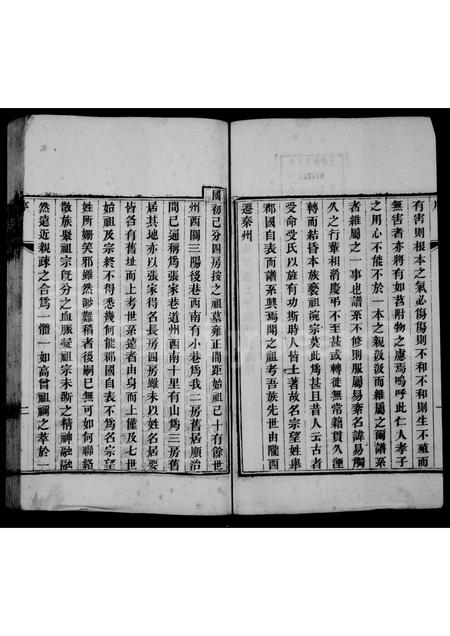 有害則根本之氣必傷傷則不和不和則生不殖而
無害者亦將有如苔附物之慮焉嗚呼此仁人孝子
之用心不能不於一本之親汲汲而維屬之爾譜系
者維屬之一事也譜系不修則服屬易紊名諱易觸
久之行葦相消慶弔不至甚或轉徙無常籍貫久湮
轉而結昏本族褻祖涴宗莫此爲甚且昔人云古者
受命受氏以旌有功斯時人皆土著故名宗望姓舉
郡國自表而譜系興焉聞之祖考吾族先世由隴西
遷秦州
國初己分四房按之祖墓雍正間距始祖己十有餘世
州西關三陽後巷西南有小巷爲我二房舊居順治
間已通稱爲張家巷道州西南十里有山爲三房舊
居其地亦以張家得名長房四房雖未以姓名居要
皆各有舊址而上考世系遠者由身而上僅及七世
始祖及宗終不得悉幾何能郡國自表不爲名宗望
姓所嫺笑邪雖然渺難稽者後嗣已無可如何聯絡
散族聚祖宗旣分之血脈凝祖宗未漸之精神融融
然遠近親疎之合爲一體一如高曾祖禰之萃於一
序
二